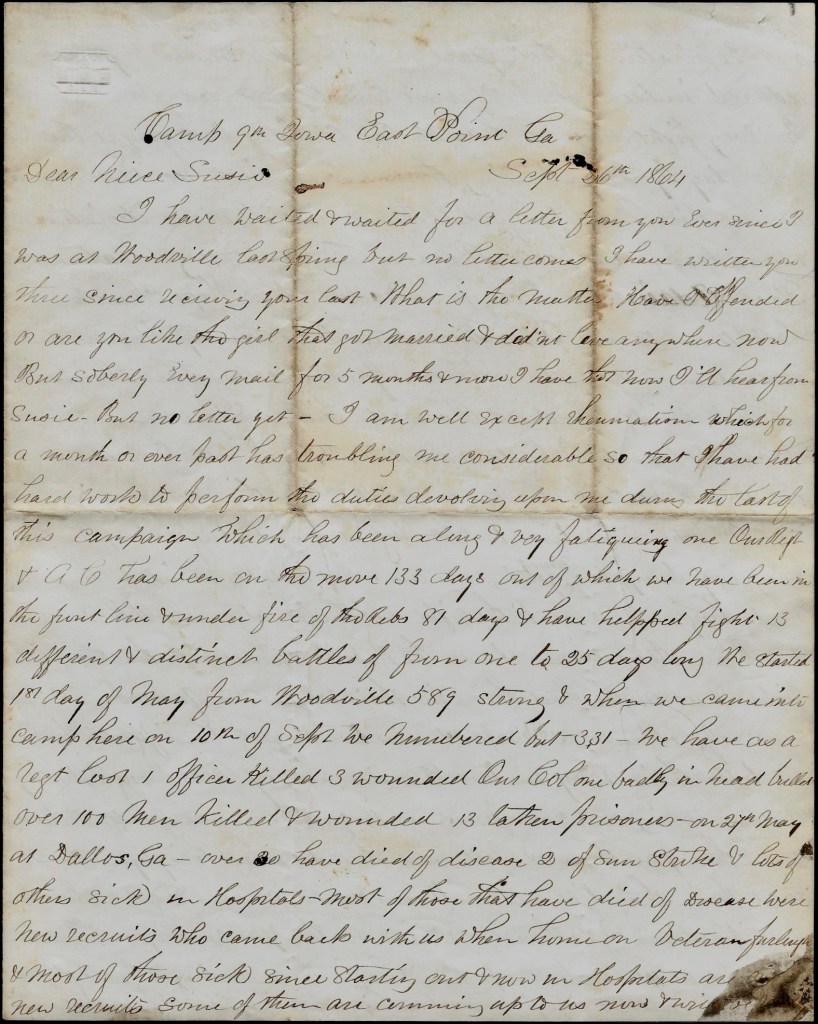 Camp 9th Iowa East Point Ga
Dear Niece Susie Sept 26th 1864
I have waited & waited for a letter from you Ever since I
was at Woodville last Spring but no letter comes I have written you
three since reciving your last What is the matter Have I Offended
or are you like the girl that got married & did'nt love anywhere now
But Soberly Evey mail for 5 months & now I have tho't now I'll hear from
Susie - But no letter yet - I am well Except rheumatism which for
a month or over past has troubling me considerable so that I have had
hard work to perform the duties devolving upon me during the last of
this campaign which has been a long & vey fatigueing one Our Regt
& A C has been on the move 133 days out of which we have been in
the front line & under fire of the Rebs 81 days & have helpped fight 13
different & distinct battles of from one to 25 days long We started
1st day of May from Woodville 589 strong & when we came into
camp here on 10th of Sept We Numbered but 331 - We have as a
regt lost 1 officer Killed 3 wounded Our Col one badly in head
over 100 Men Killed & wounded 13 taken prisoners - on 27th May
at Dallos, Ga - over 30 have died of disease 2 of Sun Stroke & lots of
others sick in Hospitals - most of those that have died of Disease were
new recruits who came back with us when home on Veteran furlough
& most of those sick since starting out & now in Hospitals are
new recruits Some of them are comming up to us now &